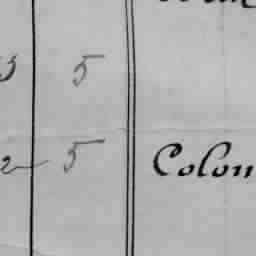 5 5
2 5 Colon